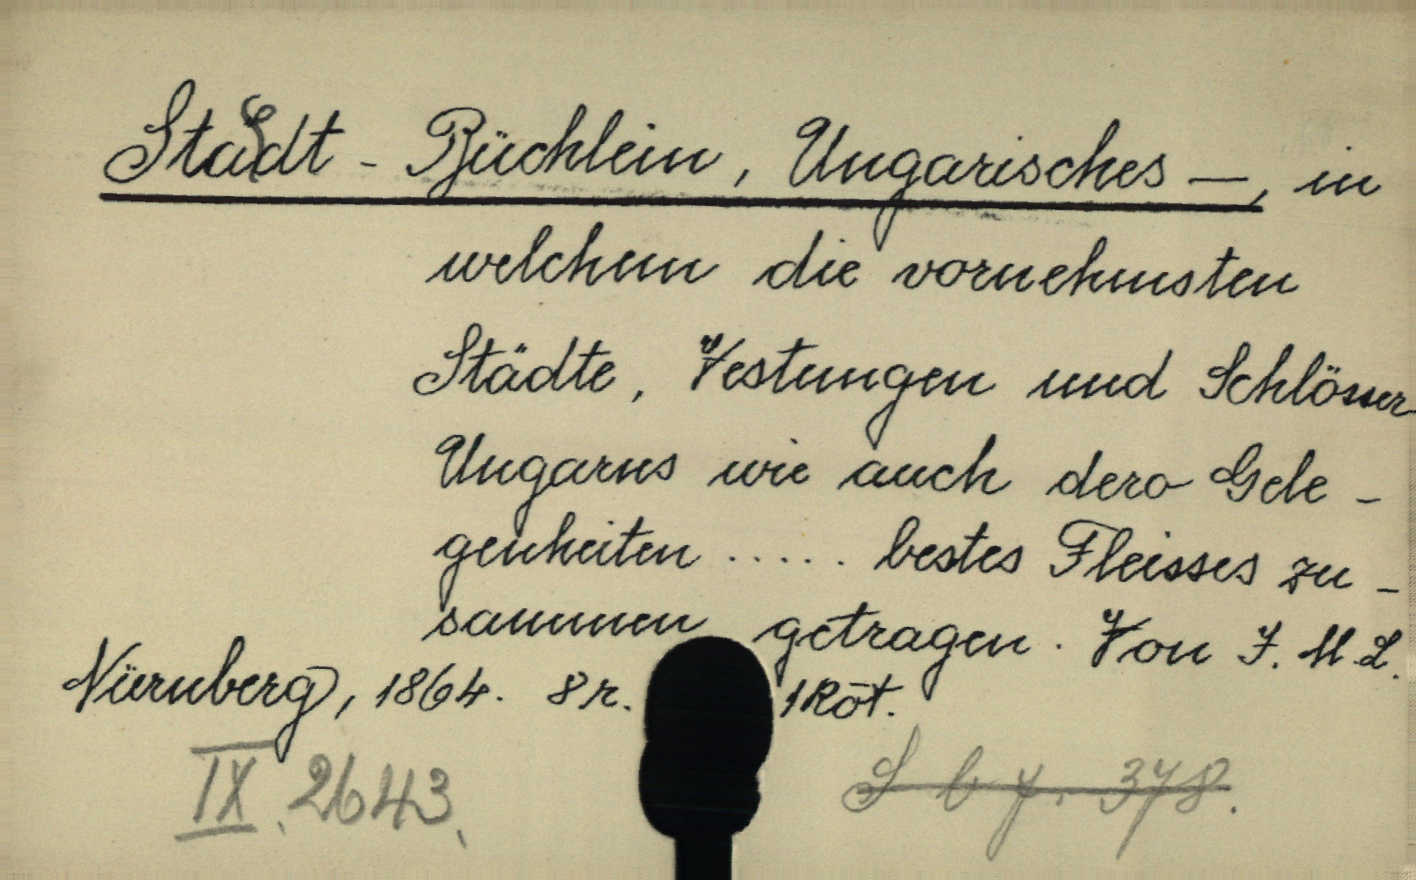 Städt - Büchlein, Ungarisches —, in
welchem die vornehmsten
Städte, Vestungen und Schlösser
Ungarns wie auch dero Gele -
genheiten ..... bestes Fleisses zu -
sammen getragen. Von J. M. L.
Nürnberg, 1864. 8r. 1 Köt.
IX. 2643.
378.